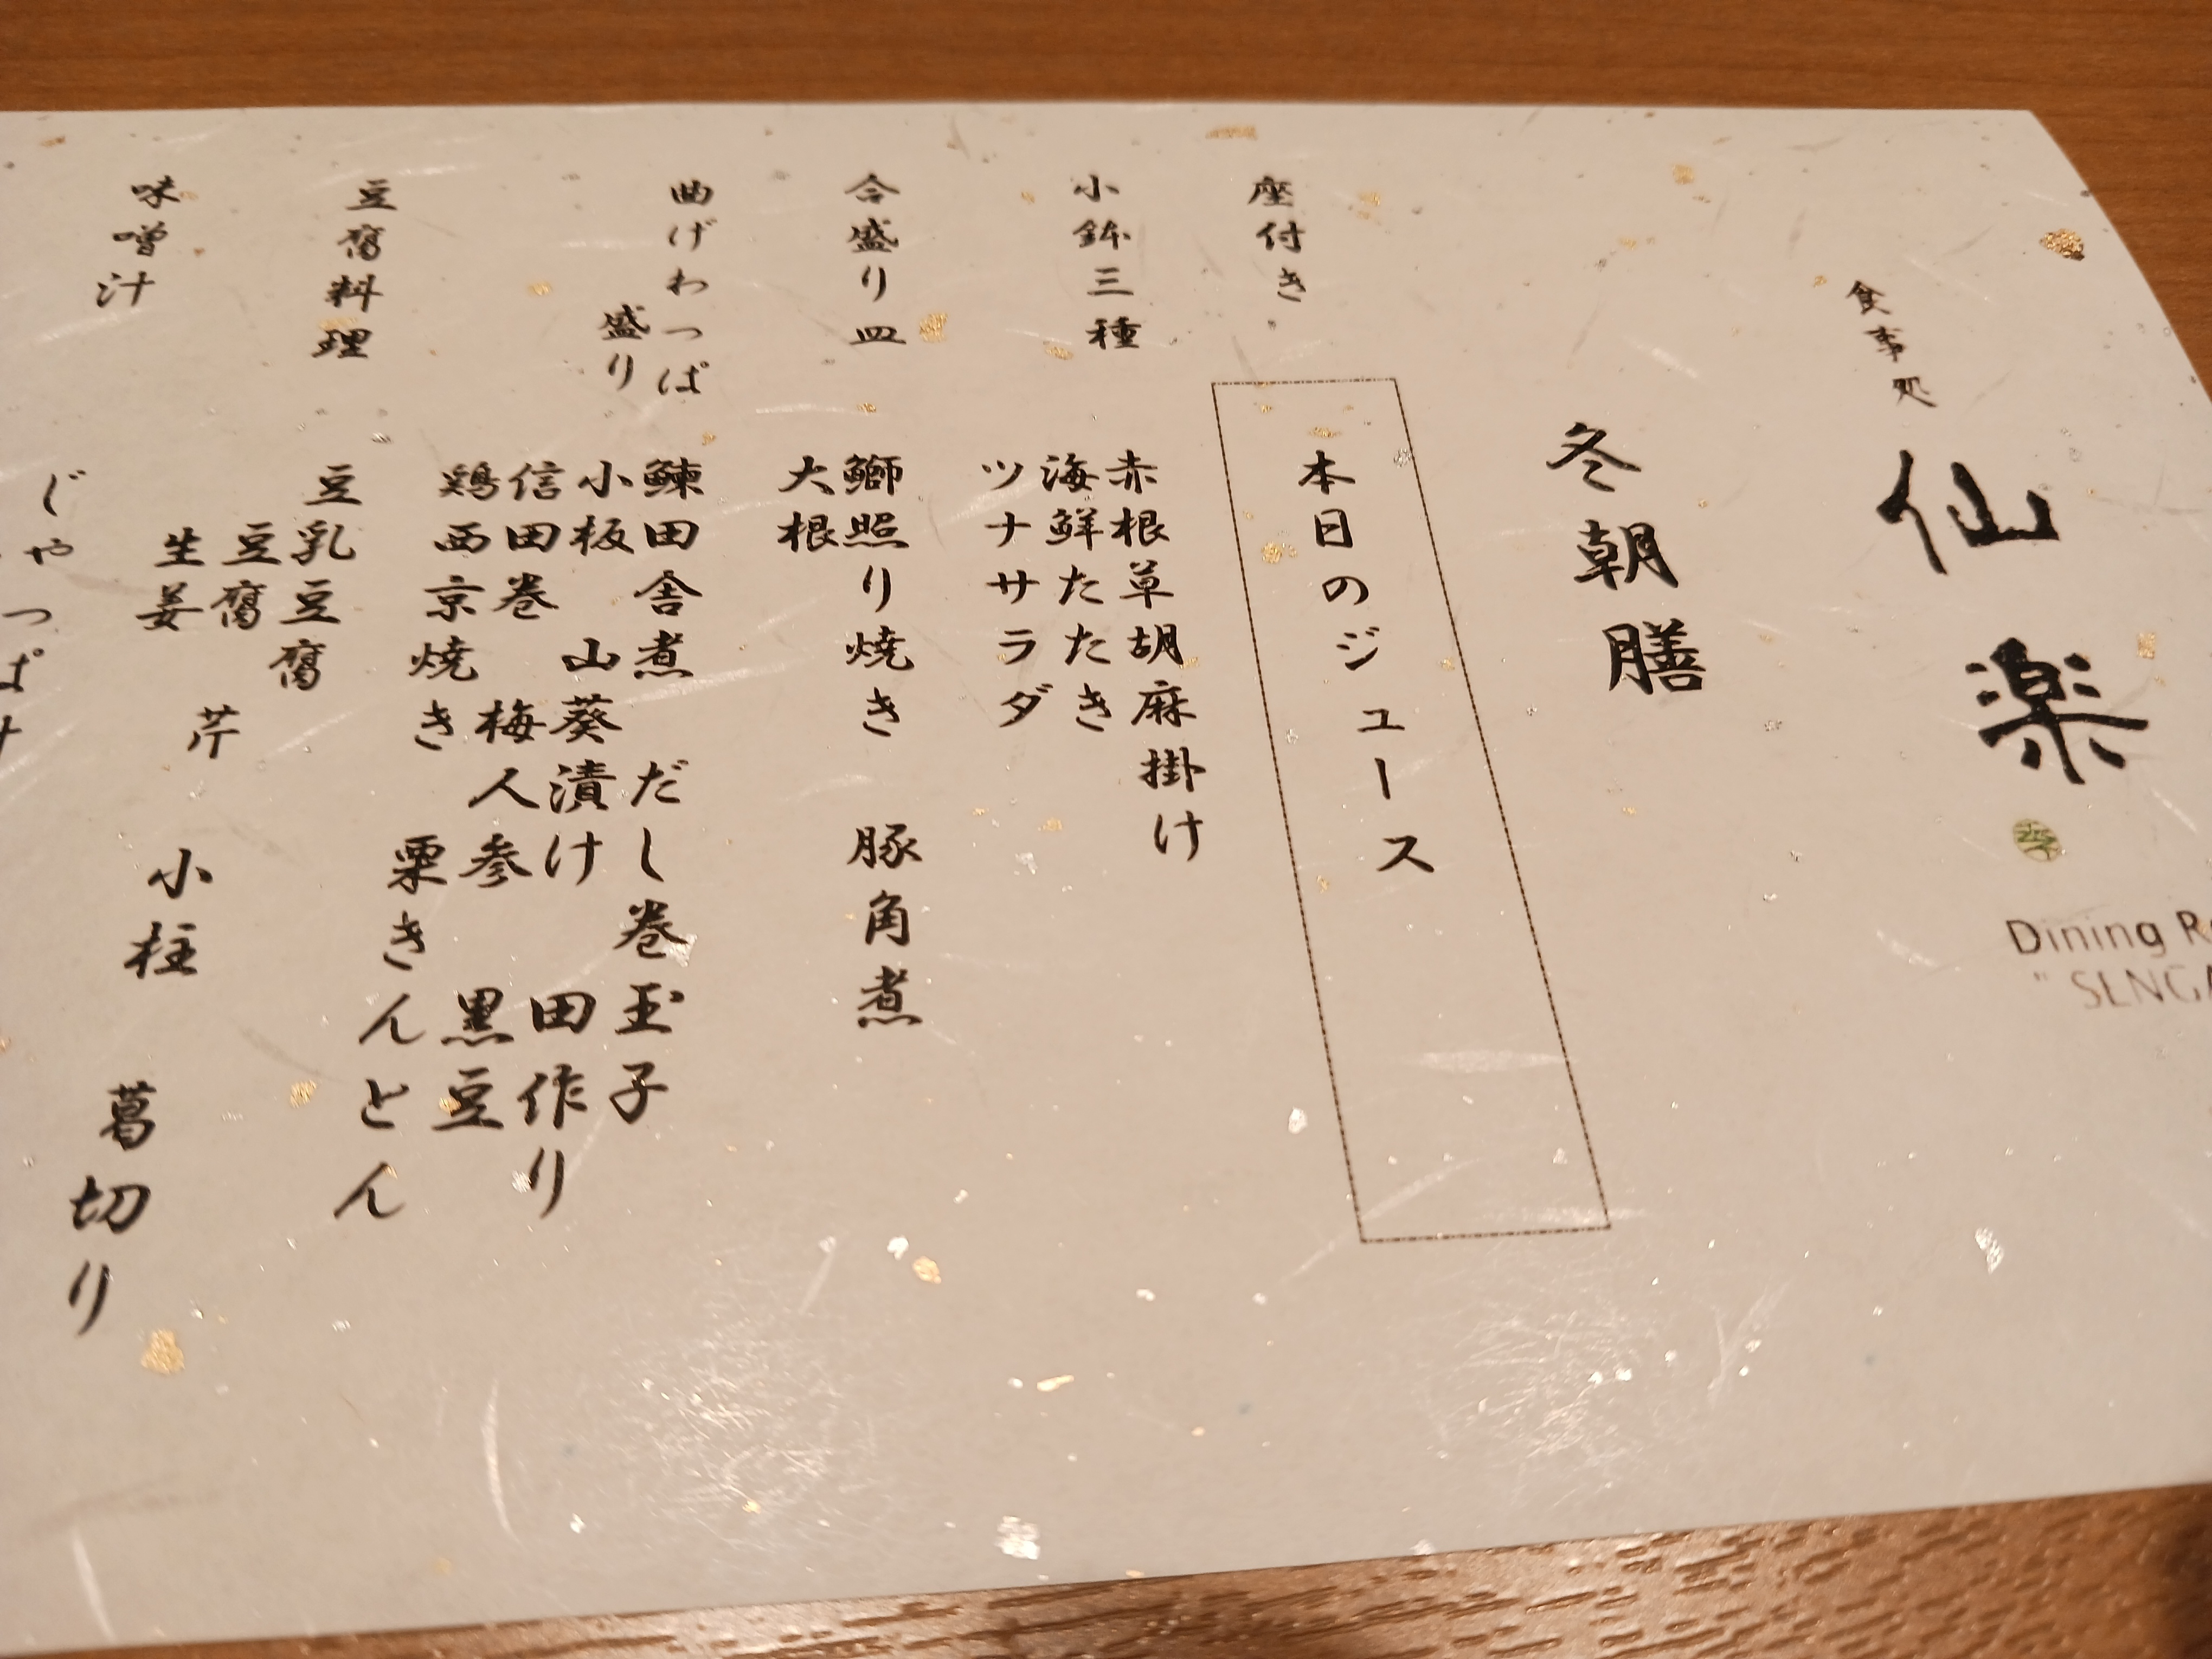 食事処
仙楽
Dining
冬朝膳
座付き
本日のジュース
小鉢三種
赤根草胡麻掛け
海鮮たたき
ツナサラダ
合盛り皿
鰤照り焼き 豚角煮
大根
曲げわっぱ
盛り
鰊田舎煮 だし巻玉子
小板 山葵漬け 田作り
信田巻 梅人参 黒豆
鶏西京焼き 栗きんとん
豆腐料理
豆乳豆腐
豆腐 芹 小柱 葛切り
生姜
味噌汁
じゃっぱ汁